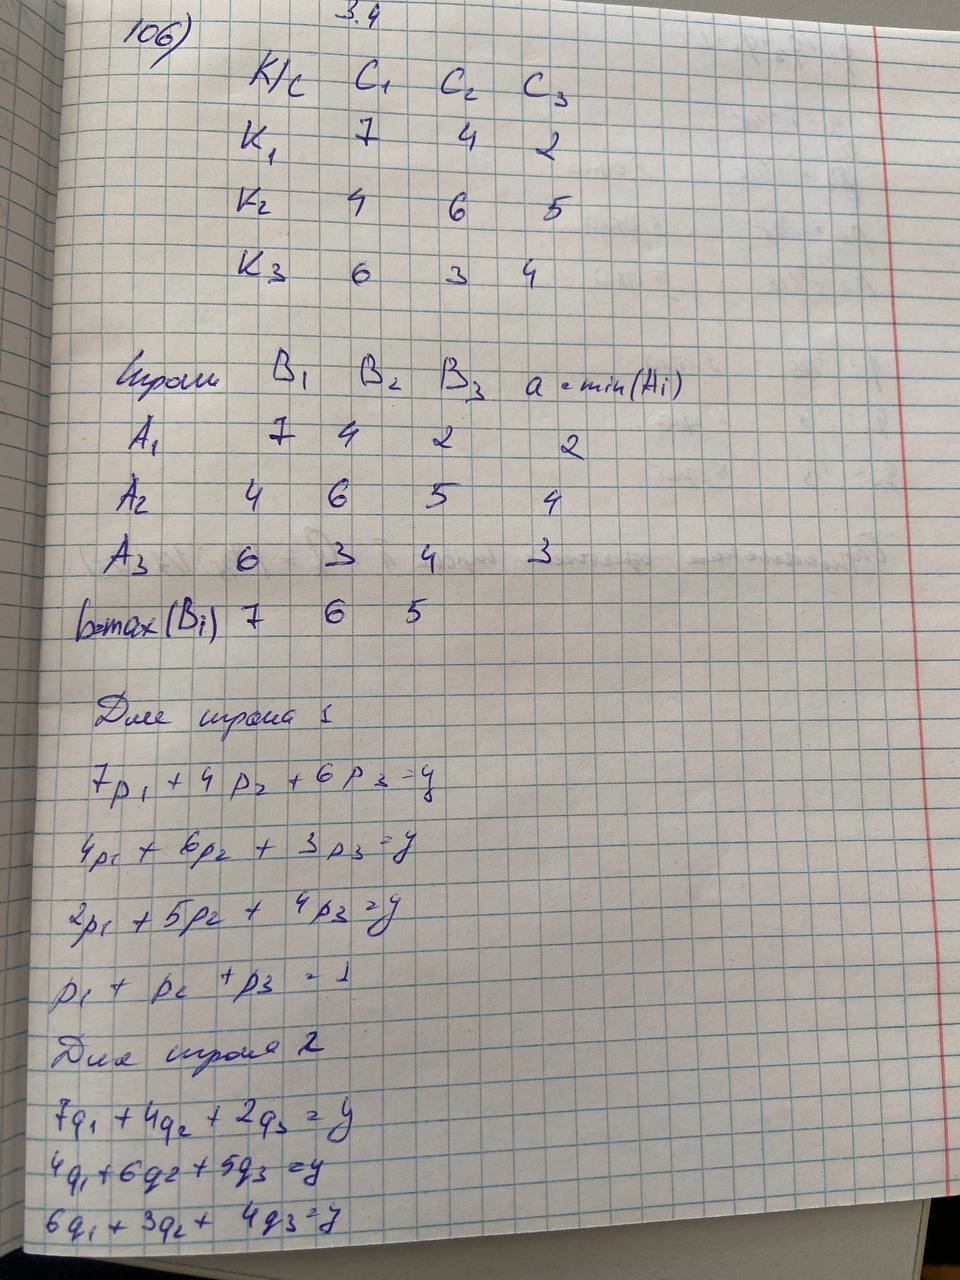 3.4
106)
K/C C1 C2 C3
K1 7 4 2
K2 4 6 5
K3 6 3 4
Игроки B1 B2 B3 a = min(Ai)
A1 7 4 2 2
A2 4 6 5 4
A3 6 3 4 3
b=max(Bi) 7 6 5
Для игрока 1
7p1 + 4p2 + 6p3 = y
4p1 + 6p2 + 3p3 = y
2p1 + 5p2 + 4p3 = y
p1 + p2 + p3 = 1
Для игрока 2
7q1 + 4q2 + 2q3 = y
4q1 + 6q2 + 5q3 = y
6q1 + 3q2 + 4q3 = y